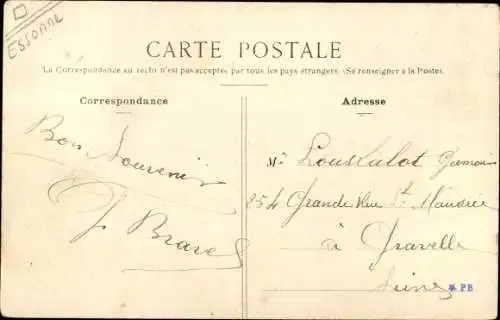 ESSONNE
CARTE POSTALE
La Correspondance au recto n'est pas acceptée par tous les pays étrangers. (Se renseigner à la Poste).
Correspondance
Adresse
Bon Souvenir
Mr Louskalot Germain
254 Grande Rue St Maurice
à Gravelle
Seine
* PB